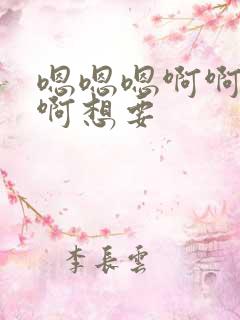 嗯嗯嗯啊啊
啊想要
李長雲